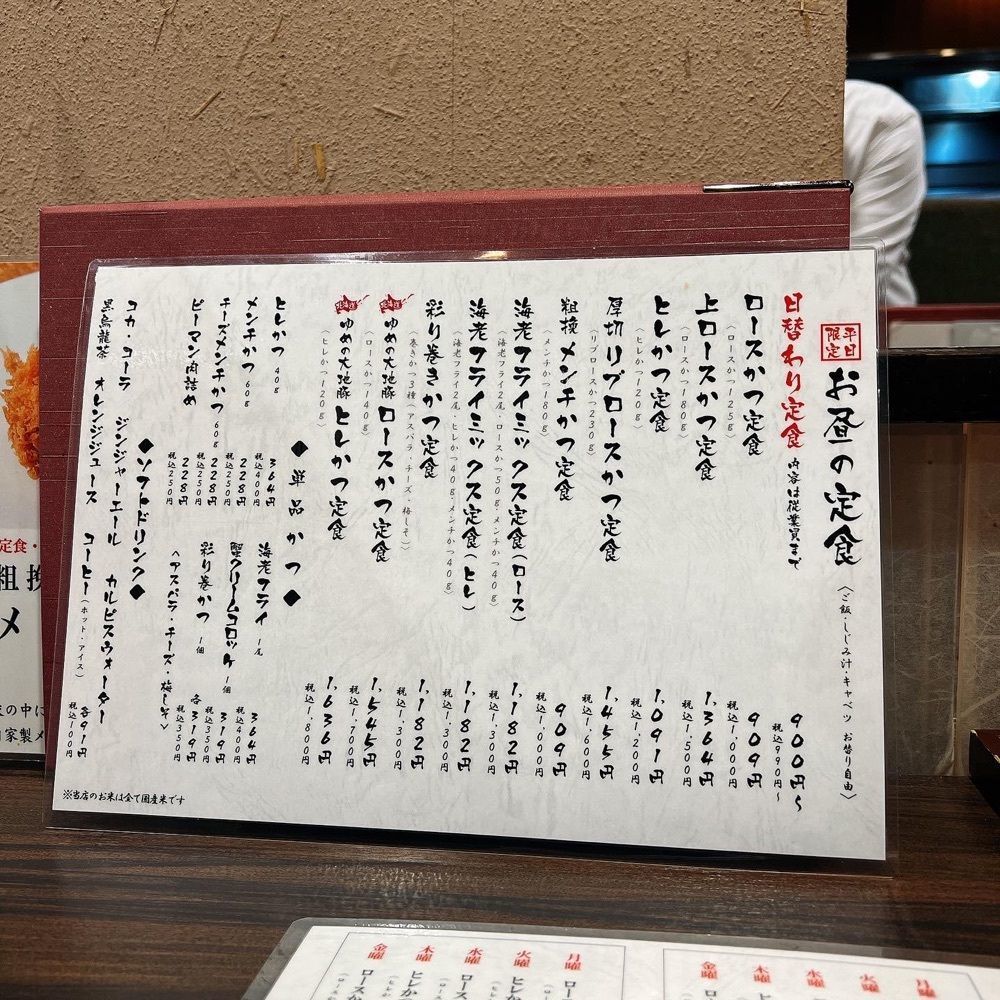 平日限定
お昼の定食
〈ご飯・しじみ汁・キャベツ お替り自由〉
日替わり定食 内容は従業員まで
900円～
税込990円～
ロースかつ定食
(ロースかつ125g)
909円
税込1,000円
上ロースかつ定食
(ロースかつ180g)
1,364円
税込1,500円
ヒレかつ定食
(ヒレかつ120g)
1,091円
税込1,200円
厚切リブロースかつ定食
(リブロースかつ230g)
1,455円
税込1,600円
粗挽メンチかつ定食
(メンチかつ180g)
909円
税込1,000円
海老フライミックス定食(ロース)
(海老フライ2尾・ロースかつ50g・メンチかつ40g)
1,182円
税込1,300円
海老フライミックス定食(ヒレ)
(海老フライ2尾・ヒレかつ40g・メンチかつ40g)
1,182円
税込1,300円
彩り巻きかつ定食
(巻きかつ3種〈アスパラ・チーズ・梅しそ〉)
1,182円
税込1,300円
北海道
ゆめの大地豚 ロースかつ定食
(ロースかつ140g)
1,545円
税込1,700円
北海道
ゆめの大地豚 ヒレかつ定食
(ヒレかつ120g)
1,636円
税込1,800円
◆単品かつ◆
ヒレかつ 40g
364円
税込400円
メンチかつ 60g
228円
税込250円
チーズメンチかつ 60g
228円
税込250円
ピーマン肉詰め
228円
税込250円
海老フライ 1尾
364円
税込400円
蟹クリームコロッケ 1個
319円
税込350円
彩り巻かつ 1個
各319円
税込350円
〈アスパラ・チーズ・梅しそ〉
◆ソフトドリンク◆
コカ・コーラ ジンジャーエール カルピスウォーター
黒烏龍茶 オレンジジュース コーヒー(ホット・アイス)
各91円
税込100円
※当店のお米は全て国産米です
定食・
粗挽
メ
の中に
自家製メ
月曜
火曜
水曜
木曜
金曜
月曜
火曜
水曜
木曜
金曜